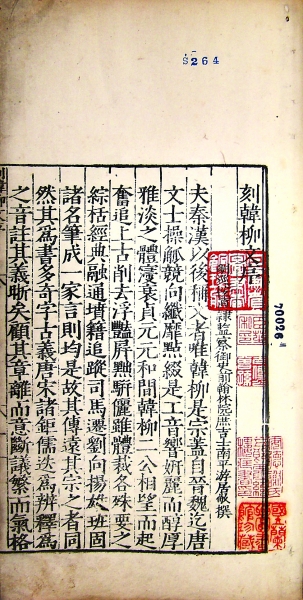 S264
刻韓柳文序
監察御史前翰林院庶吉士南平游居敬撰
夫秦漢以後稱文者唯韓柳是宗蓋自晉魏迄唐
文士操觚競向纖靡點綴是工音響妍麗而醇厚
雅淡之體寖衰貞元元和間韓柳二公相望而起
奮追上古削去浮豔屏黜駢儷雖體裁各殊要之
綜栝經典融通墳籍追蹤司馬遷劉向揚雄班固
諸名筆成一家言則均是故其傳遠其宗之者同
然其為書多奇字古義唐宋諸鉅儒迭為辨釋為
之音註其義晰矣顧其章離而意斷議繁而氣格
70026